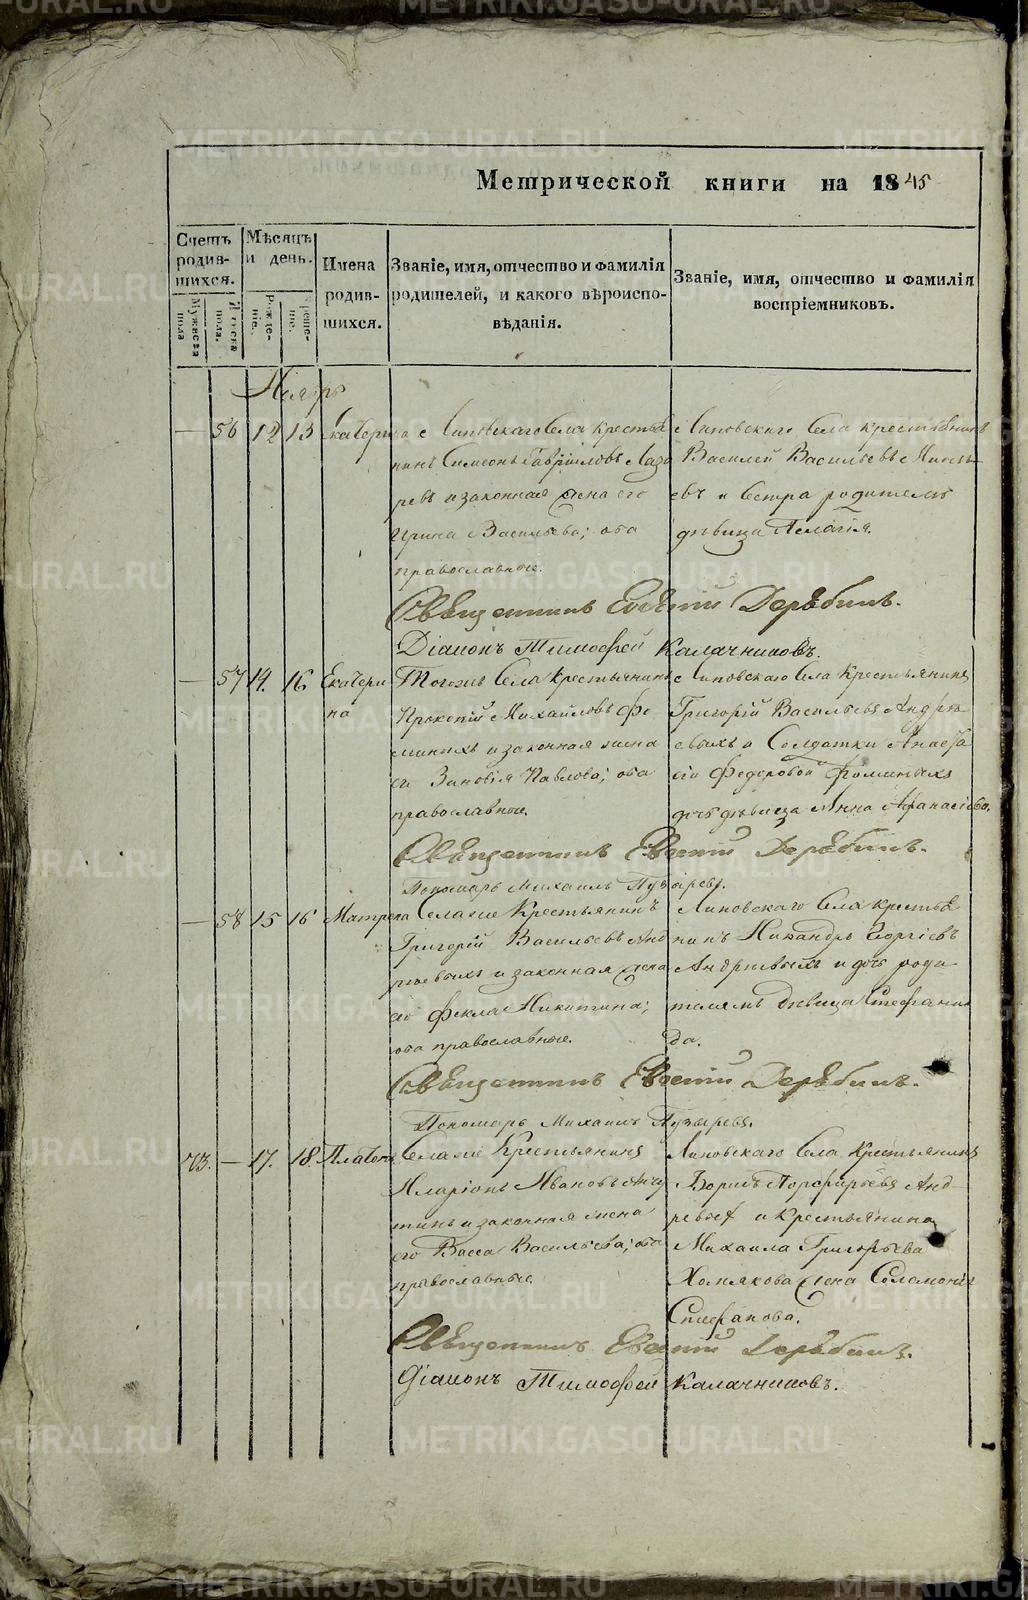 Метрической книги на 1845
Счетъ родившихся.
Мѣсяцъ и день.
Имена родившихся.
Званіе, имя, отчество и фамилія родителей, и какого вѣроисповѣданія.
Званіе, имя, отчество и фамилія воспріемниковъ.
Мужеска пола
Женска пола.
Рожденіе.
Крещеніе.
Ноябрь
— 56 12 13 Екатерина
Липовскаго Села крестья
нинъ Симеонъ Гавріиловъ Лаза
ревъ и законная жена его
Ирина Васильева; оба
православные.
Липовскаго Села крестьянинъ
Василей Васильевъ
и Сестра родителя
дѣвица Пелагія.
Священникъ Евѳимій Дерябинъ.
Діаконъ Тимофей Калачниковъ.
— 57 14. 16 Екатери
на
Тогожъ Села крестьянинъ
Прокопій Михайловъ Фо
миныхъ и законная жена
его Зиновія Павлова; оба
православные.
Липовскаго Села Крестьянинъ
Григорій Васильевъ Андрѣ
евыхъ и Солдатки Анаста
сіи Федоровой Фоминыхъ
дочь дѣвица Анна Афанасіева.
Священникъ Евѳимій Дерябинъ.
Пономарь Михаилъ Пузыревъ.
— 58 15 16 Матрена
Села же Крестьянинъ
Григорій Васильевъ Анд
реевыхъ и законная жена
его Фекла Никитина;
оба православные.
Липовскаго Села крестья
нинъ Никандръ Георгіевъ
Андреевыхъ и дочь роди
телямъ дѣвица Стефани
да.
Священникъ Евѳимій Дерябинъ.
Пономарь Михаилъ Пузыревъ.
73. — 17. 18. Платонъ
Села же Крестьянинъ
Иларіонъ Ивановъ
и законная жена
его Васса Васильева; оба
православные.
Липовскаго Села Крестьянинъ
Борисъ Порфирьевъ Анд
реевыхъ и крестьянина
Михаила Григорьева
Хомякова жена Соломонія
Стефанова.
Священникъ Евѳимій Дерябинъ.
Діаконъ Тимофей Калачниковъ.
METRIKI.GASO-URAL.RU